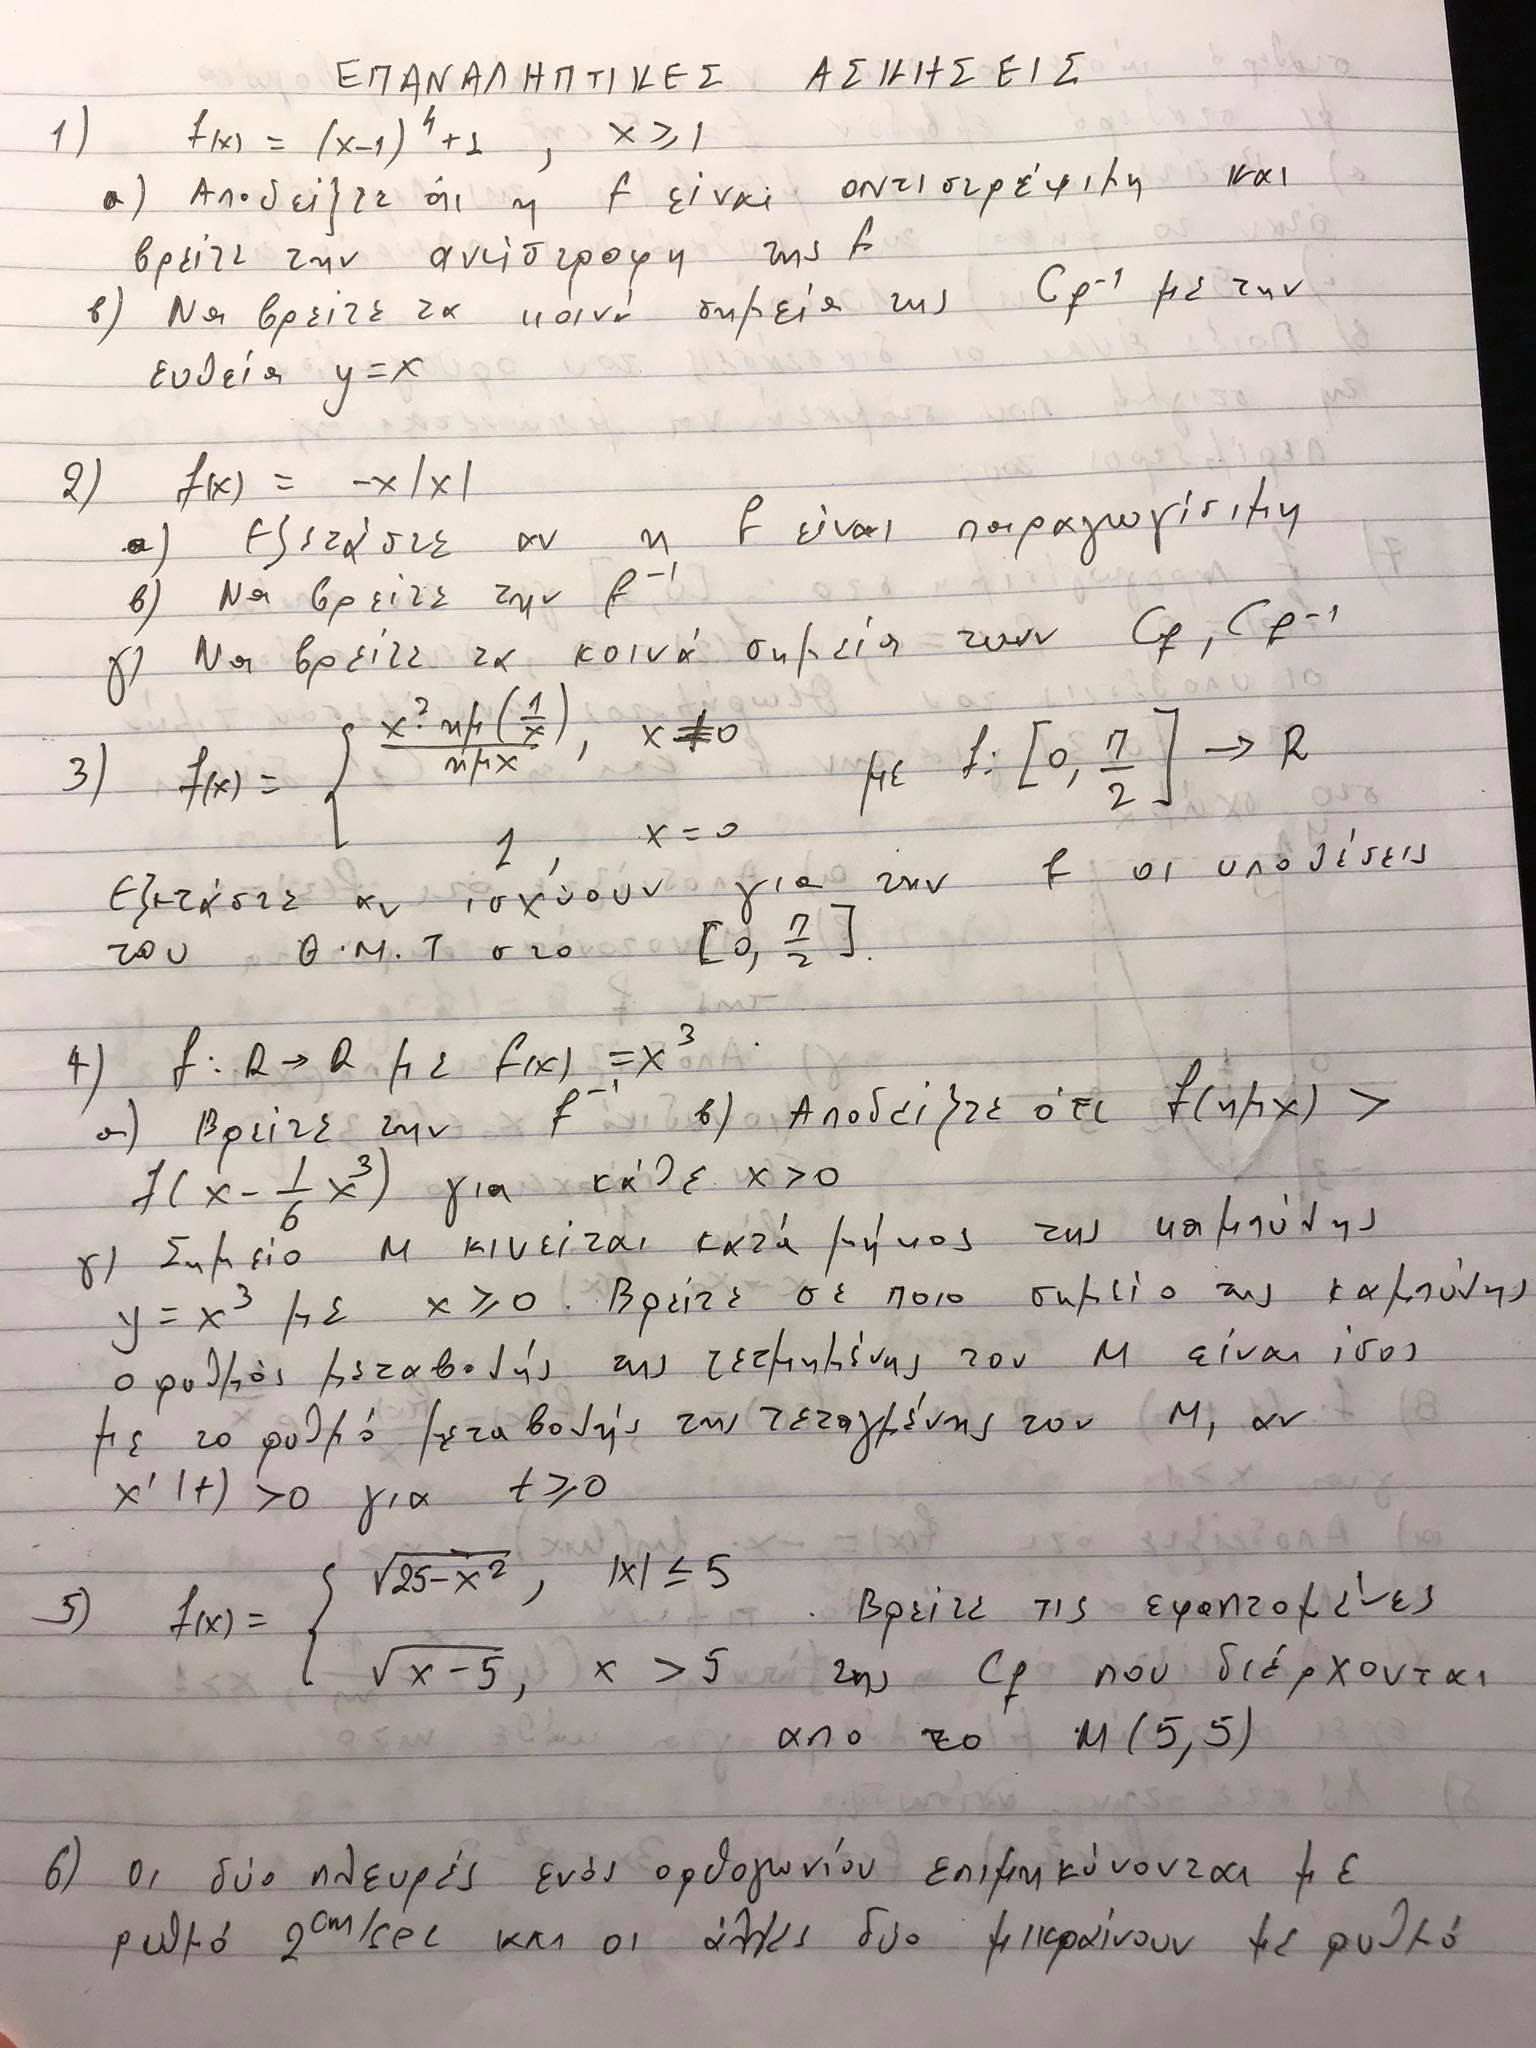 ΕΠΑΝΑΛΗΠΤΙΚΕΣ ΑΣΚΗΣΕΙΣ
1) f(x) = (x-1)⁴+1, x≥1
α) Αποδείξτε ότι η f είναι αντιστρέψιμη και
βρείτε την αντίστροφη της f
β) Να βρείτε τα κοινά σημεία της Cf⁻¹ με την
ευθεία y=x
2) f(x) = -x|x|
α) Εξετάστε αν η f είναι παραγωγίσιμη
β) Να βρείτε την f⁻¹
γ) Να βρείτε τα κοινά σημεία των Cf, Cf⁻¹
3) f(x) = { x² ημ(1/x) / ημx, x≠0 με f: [0, π/2] → R
1, x=0
Εξετάστε αν ισχύουν για την f οι υποθέσεις
του Θ.Μ.Τ στο [0, π/2].
4) f: R→R με f(x) = x³
α) Βρείτε την f⁻¹ β) Αποδείξτε ότι f(ημx) >
f(x - 1/6 x³) για κάθε x>0
γ) Σημείο Μ κινείται κατά μήκος της καμπύλης
y = x³ με x≥0. Βρείτε σε ποιο σημείο της καμπύλης
ο ρυθμός μεταβολής της τετμημένης του Μ είναι ίσος
με το ρυθμό μεταβολής της τεταγμένης του Μ, αν
x'(t) >0 για t≥0
5) f(x) = { √25-x², |x| ≤ 5 . Βρείτε τις εφαπτομένες
√x-5, x > 5 της Cf που διέρχονται
απο το Μ(5,5)
6) Οι δύο πλευρές ενός ορθογωνίου επιμηκύνονται με
ρυθμό 2cm/sec και οι άλλες δύο μικραίνουν με ρυθμό